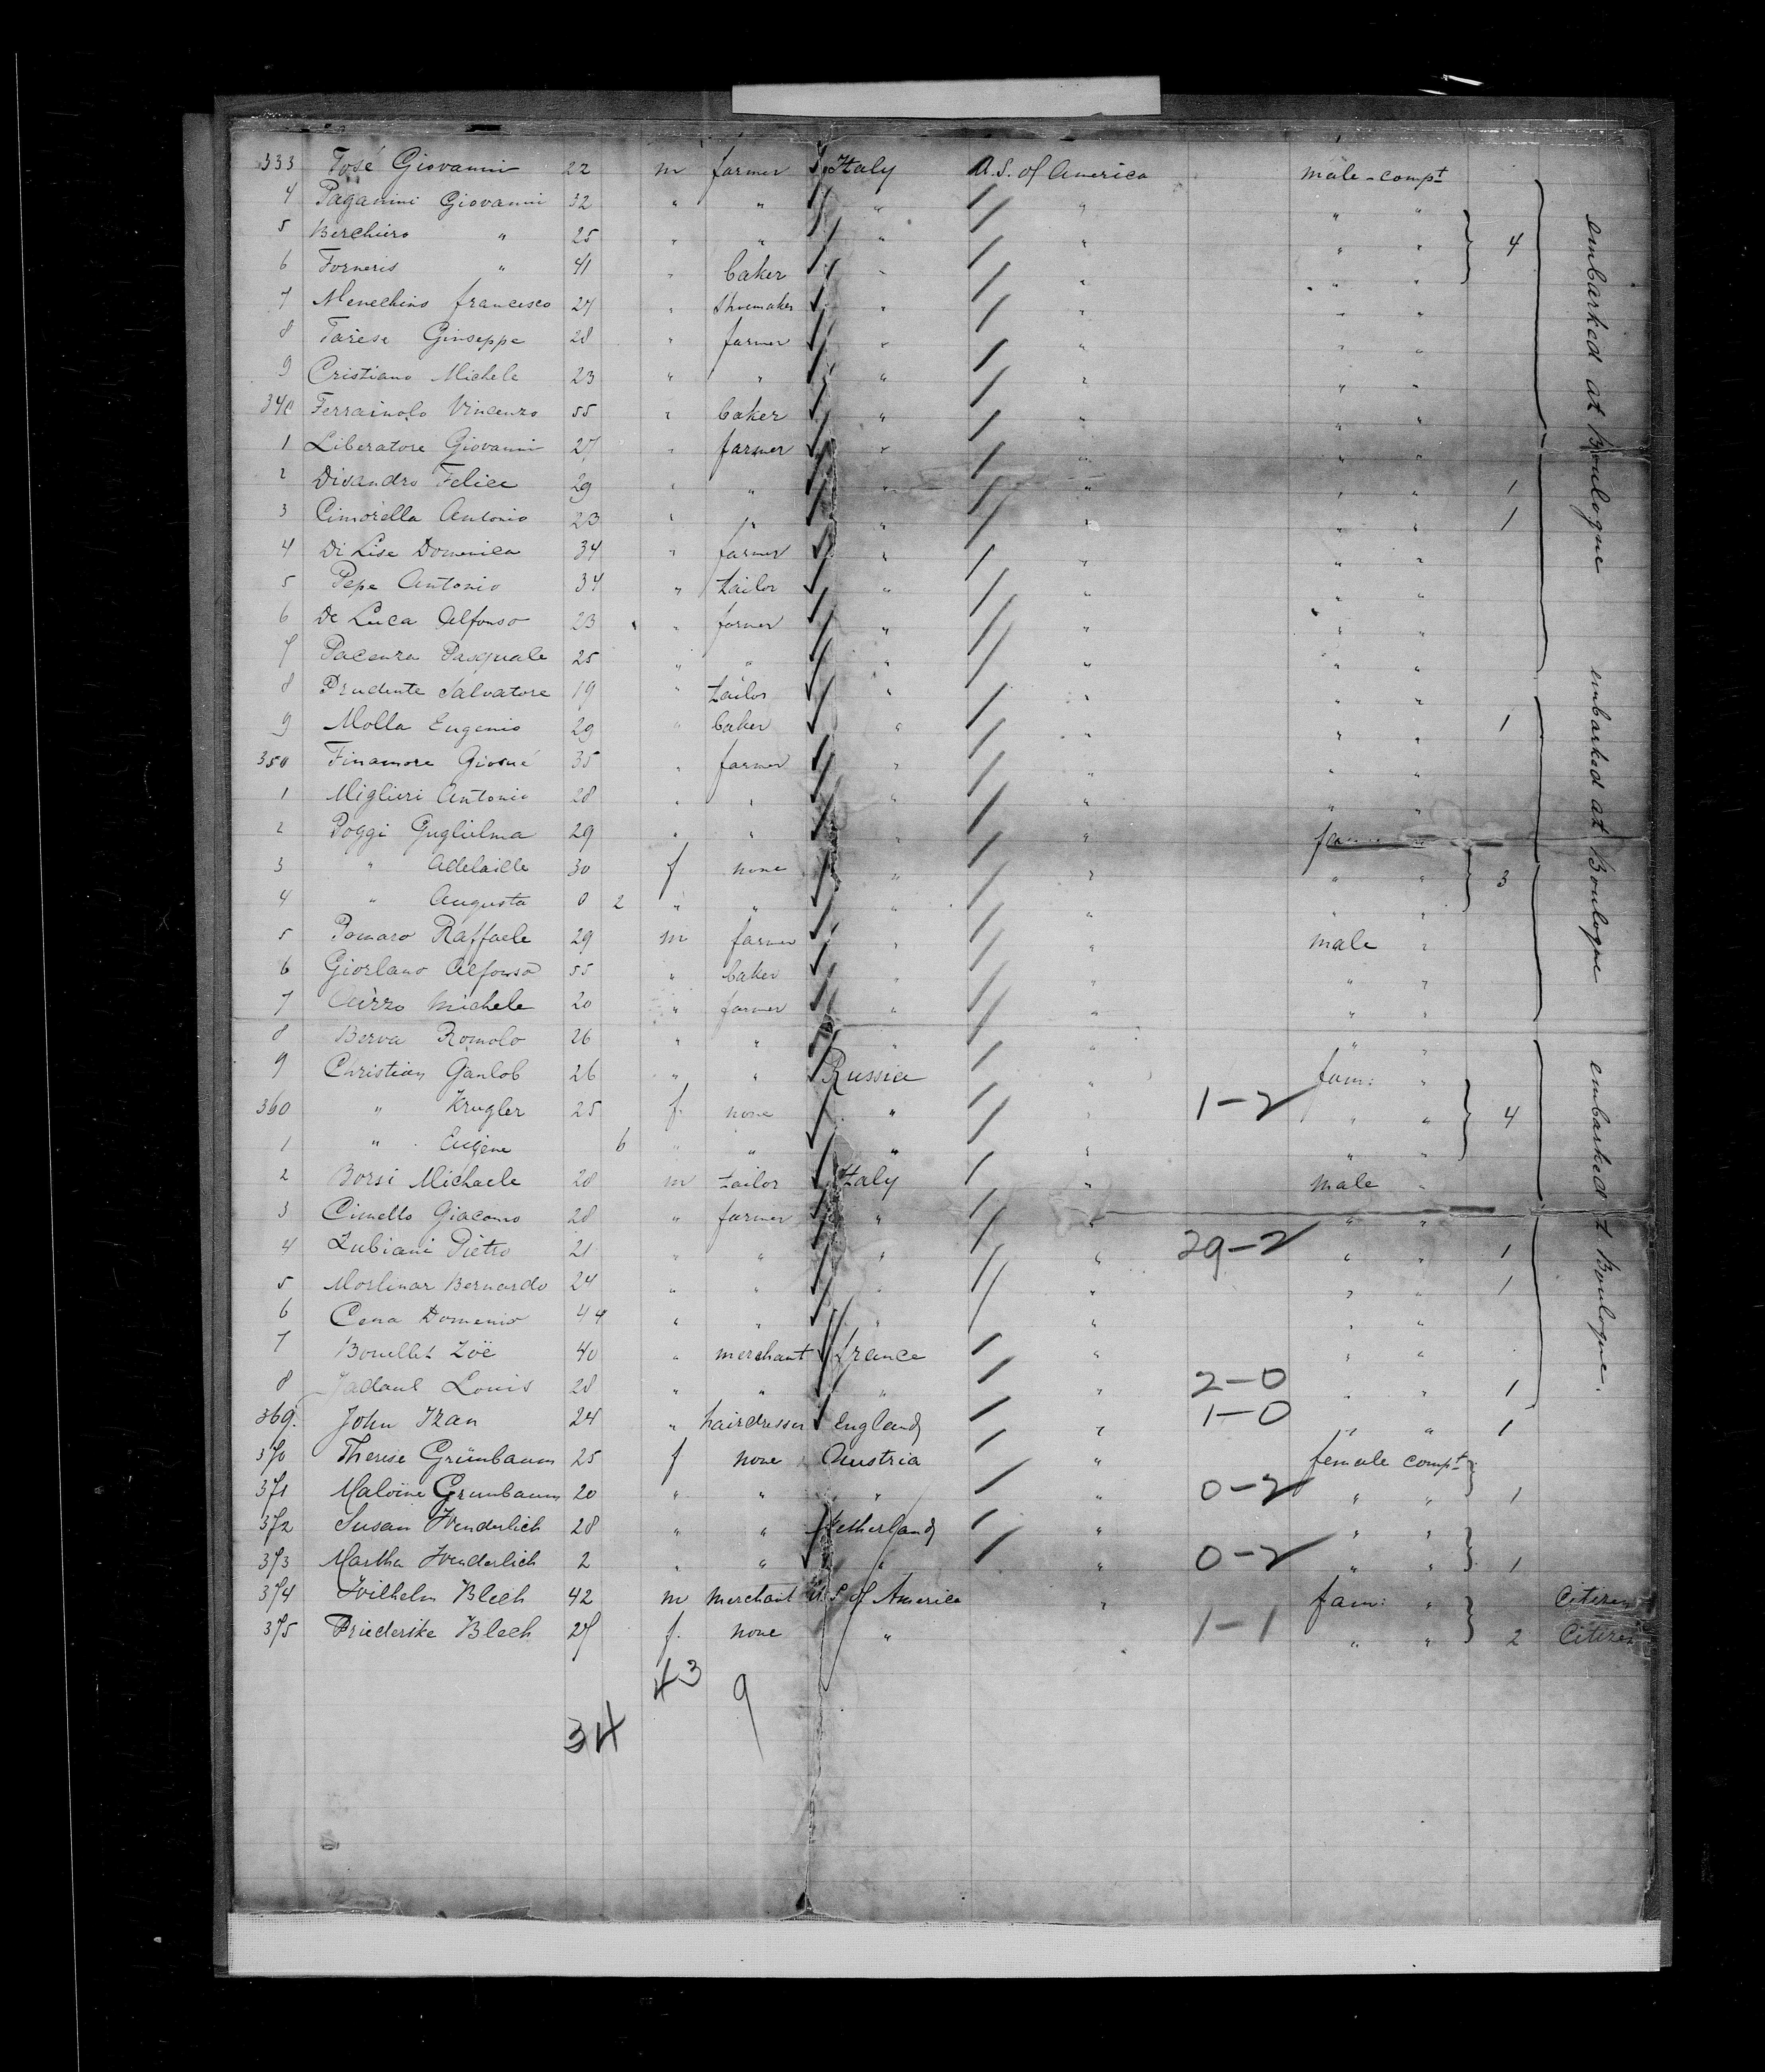 333 Tosé Giovanni 22 m farmer Italy U.S. of America male-compt
4 Paganini Giovanni 32 " " " " " "
5 Berchiero " 25 " " " " " " 4
6 Forneris " 41 " baker " " " "
7 Menechino francesco 27 " shoemaker " " " "
8 Tarese Giuseppe 28 " farmer " " " "
9 Cristiano Michele 23 " " " " " "
340 Ferrainolo Vincenzo 55 " baker " " " "
1 Liberatore Giovanni 27 " farmer " " " "
2 Disandro Felice 29 " " " " " " 1
3 Cimorella Antonio 23 " " " " " " 1
4 Di Lise Domenica 34 " farmer " " " "
5 Pepe Antonio 34 " tailor " " " "
6 De Luca Alfonso 23 " farmer " " " "
7 Pacenza Pasquale 25 " " " " " "
8 Prudente Salvatore 19 " tailor " " " "
9 Molla Eugenio 29 " baker " " " " 1
350 Finamore Giosué 35 " farmer " " " "
1 Miglieri Antonio 28 " " " " " "
2 Poggi Guglielma 29 " " " " "
3 " Adelaide 30 f none " " " " 3
4 " Augusta 0 2 " " " " " "
5 Pomaro Raffaele 29 m farmer " " male "
6 Giorlano Alfonso 55 " baker " " " "
7 Michele 20 " farmer " " " "
8 Berva Romolo 26 " " " " " "
9 Christian Ganlob 26 " " Russia " fam: "
360 " Krugler 25 f. none " " 1-2 " " 4
1 " Eugene 6 " " " " " "
2 Borsi Michaele 28 m tailor Italy " male "
3 Cimello Giacomo 28 " farmer " " " "
4 Zubiani Pietro 21 " " " " 29-2 " " 1
5 Morlinar Bernardo 24 " " " " " " 1
6 Cena Domenio 44 " " " " " "
7 Bouellet Zoë 40 " merchant france " " "
8 Jadaul Louis 28 " " " " 2-0 " " 1
369. John Izan 24 " hairdresser England " 1-0 " " 1
370 Therese Grünbaum 25 f none Austria " female compt
371 Malvine Grunbaum 20 " " " " 0-2 " " 1
372 Susan Wenderlich 28 " " Netherland " " "
373 Martha Wenderlich 2 " " " " 0-2 " " 1
374 Wilhelm Blech 42 m merchant U.S of America " fam: " Citizen
375 Friederike Blech 27 f. none " 1-1 " " 2 Citizen
43 9
34
embarked at Boulogne
embarked at Boulogne
embarked at Boulogne.